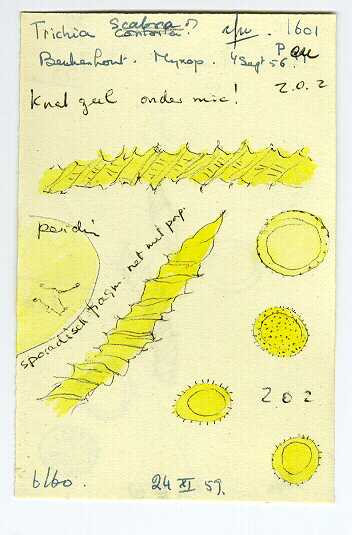 Trichia Scabra 1601
contorta
Beukenhout. Myxop. 4 Sept 56.
Knal geel onder mic!
2.0.2
peridi
sporadisch fragm. net met pap.
2 0 2
6/60.
24 XI 59.